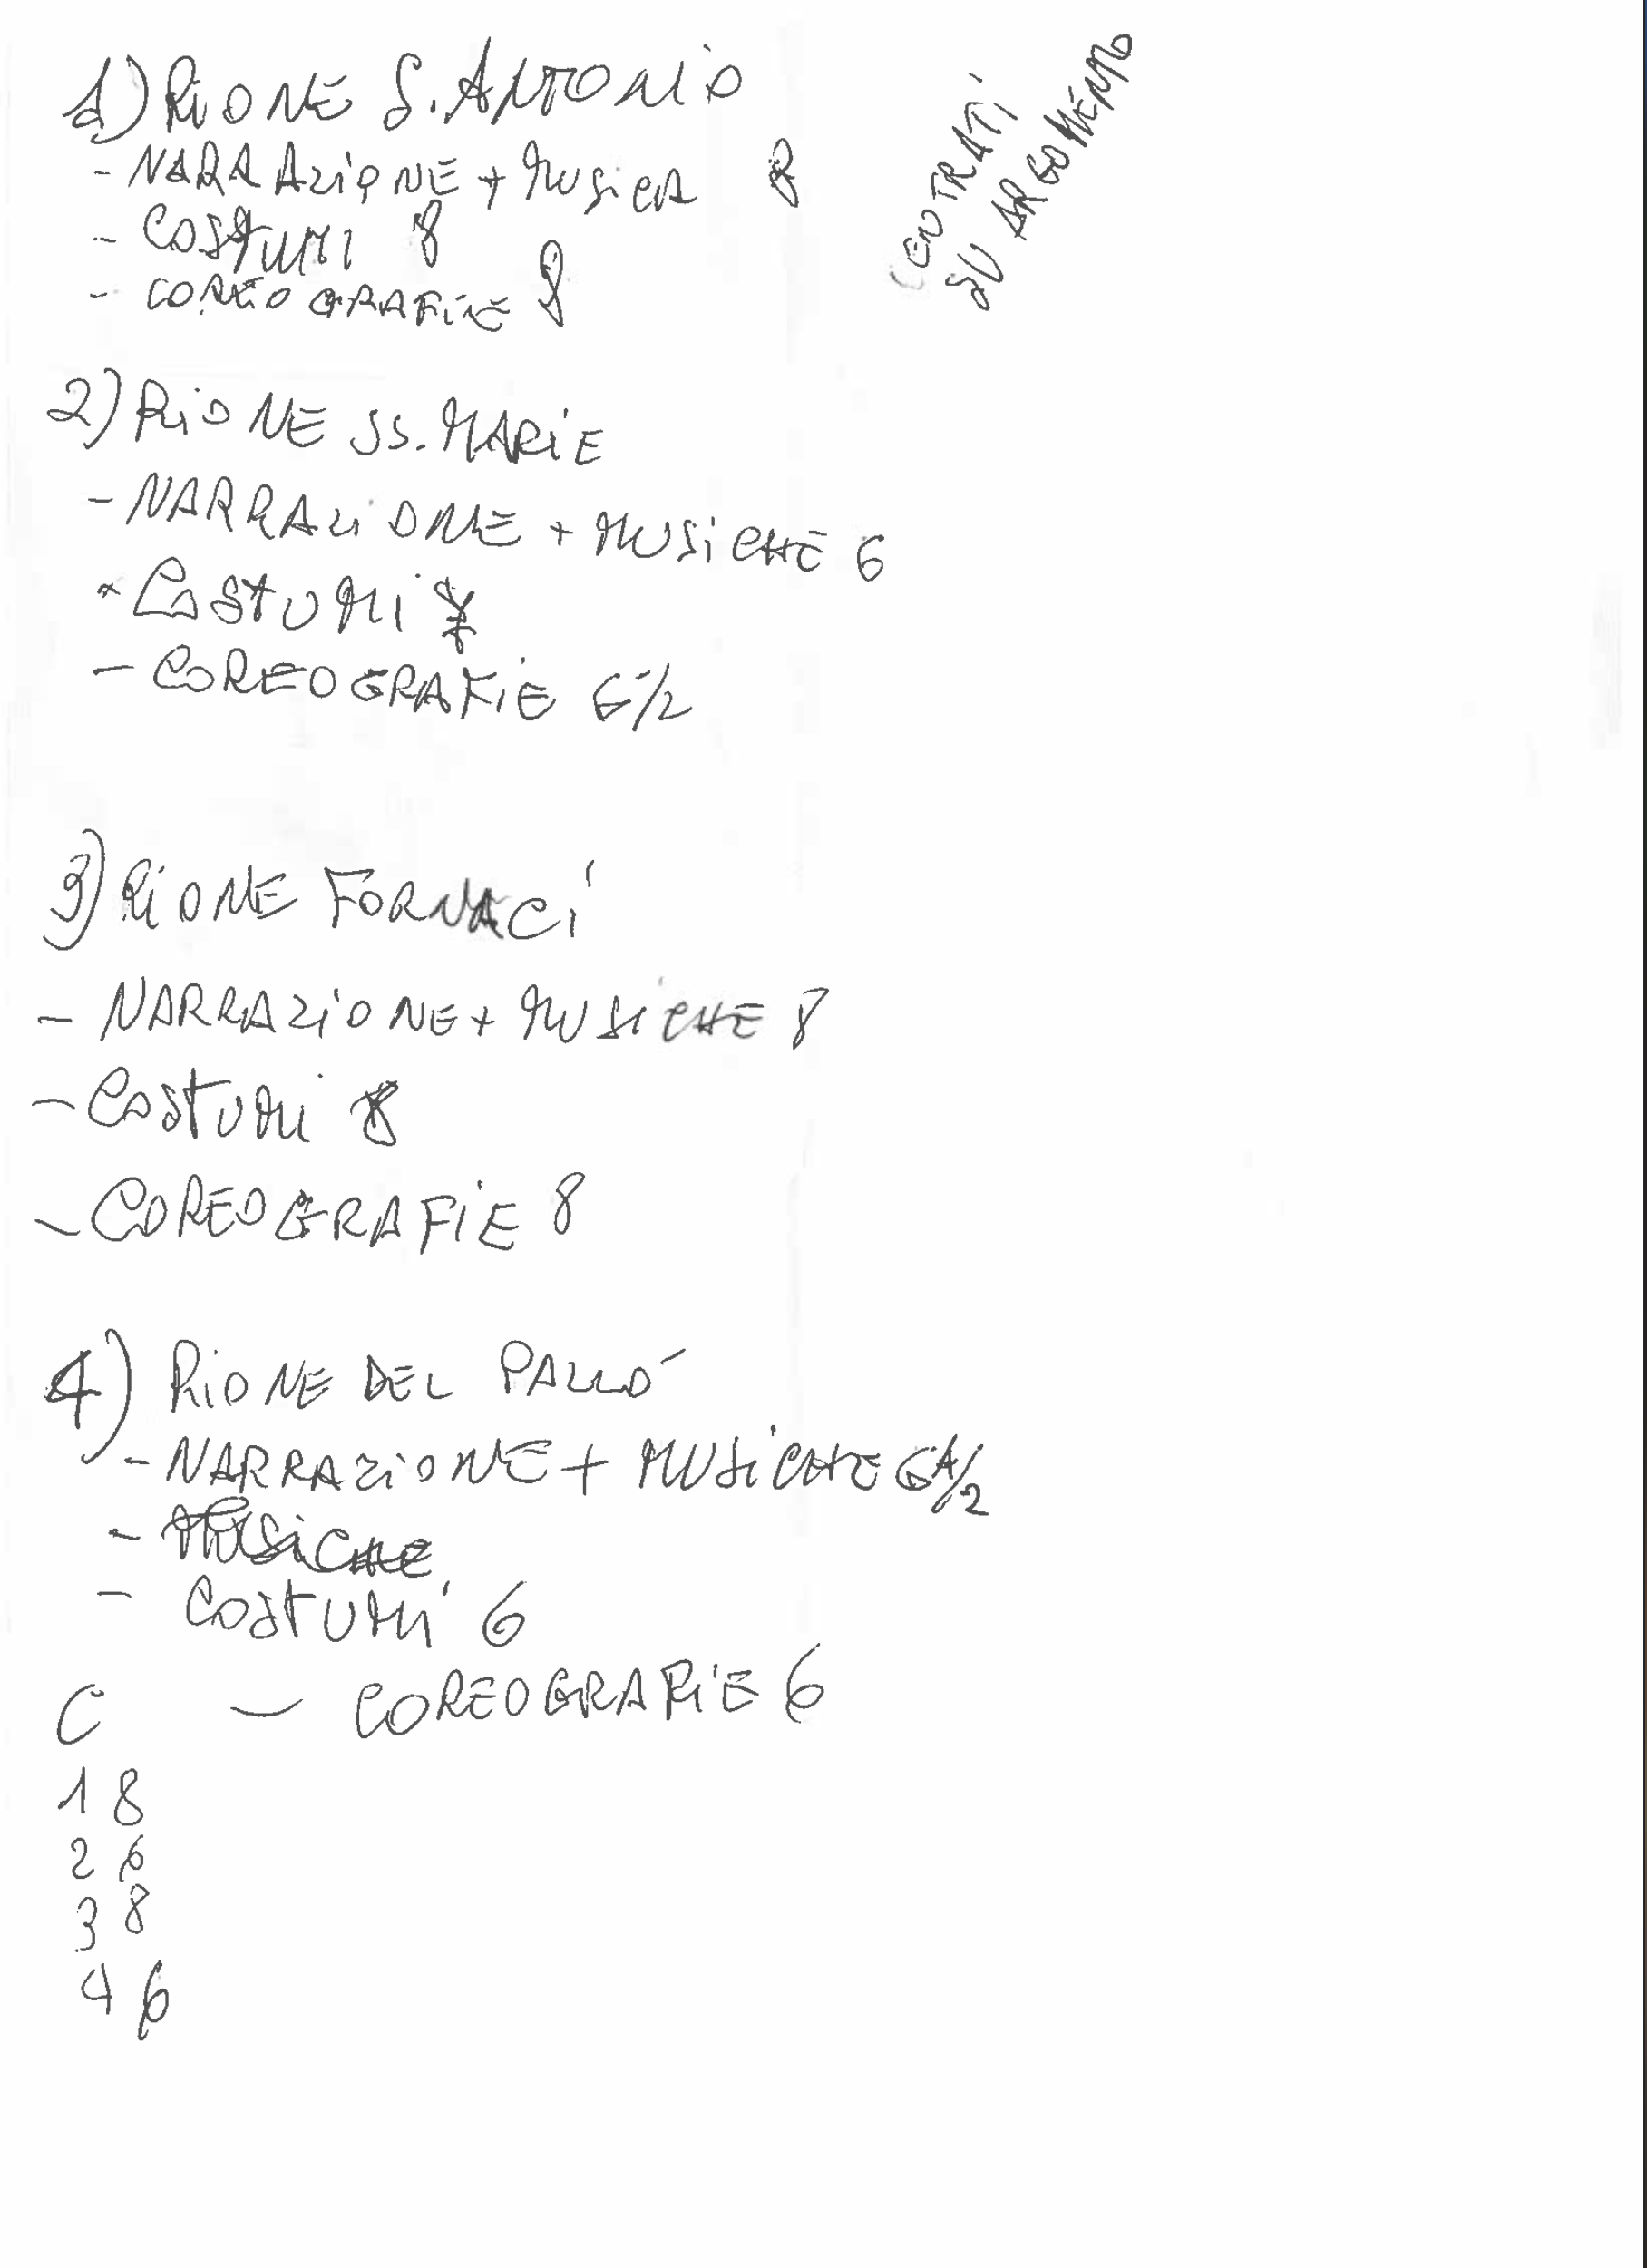 1) RIONE S. ANTONIO
- NARRAZIONE + MUSICA 8
- COSTUMI 8
- COREOGRAFIE 8
CENTRATI
SU ARGOMENTO
2) RIONE SS. MARIE
- NARRAZIONE + MUSICHE 6
- COSTUMI
- COREOGRAFIE 6 1/2
3) RIONE FORNACI
- NARRAZIONE + MUSICHE 8
- COSTUMI 8
- COREOGRAFIE 8
4) RIONE DEL PALLÓ
- NARRAZIONE + MUSICHE 6 1/2
- MUSICHE
- COSTUMI 6
C - COREOGRAFIE 6
1 8
2 6
3 8
4 6